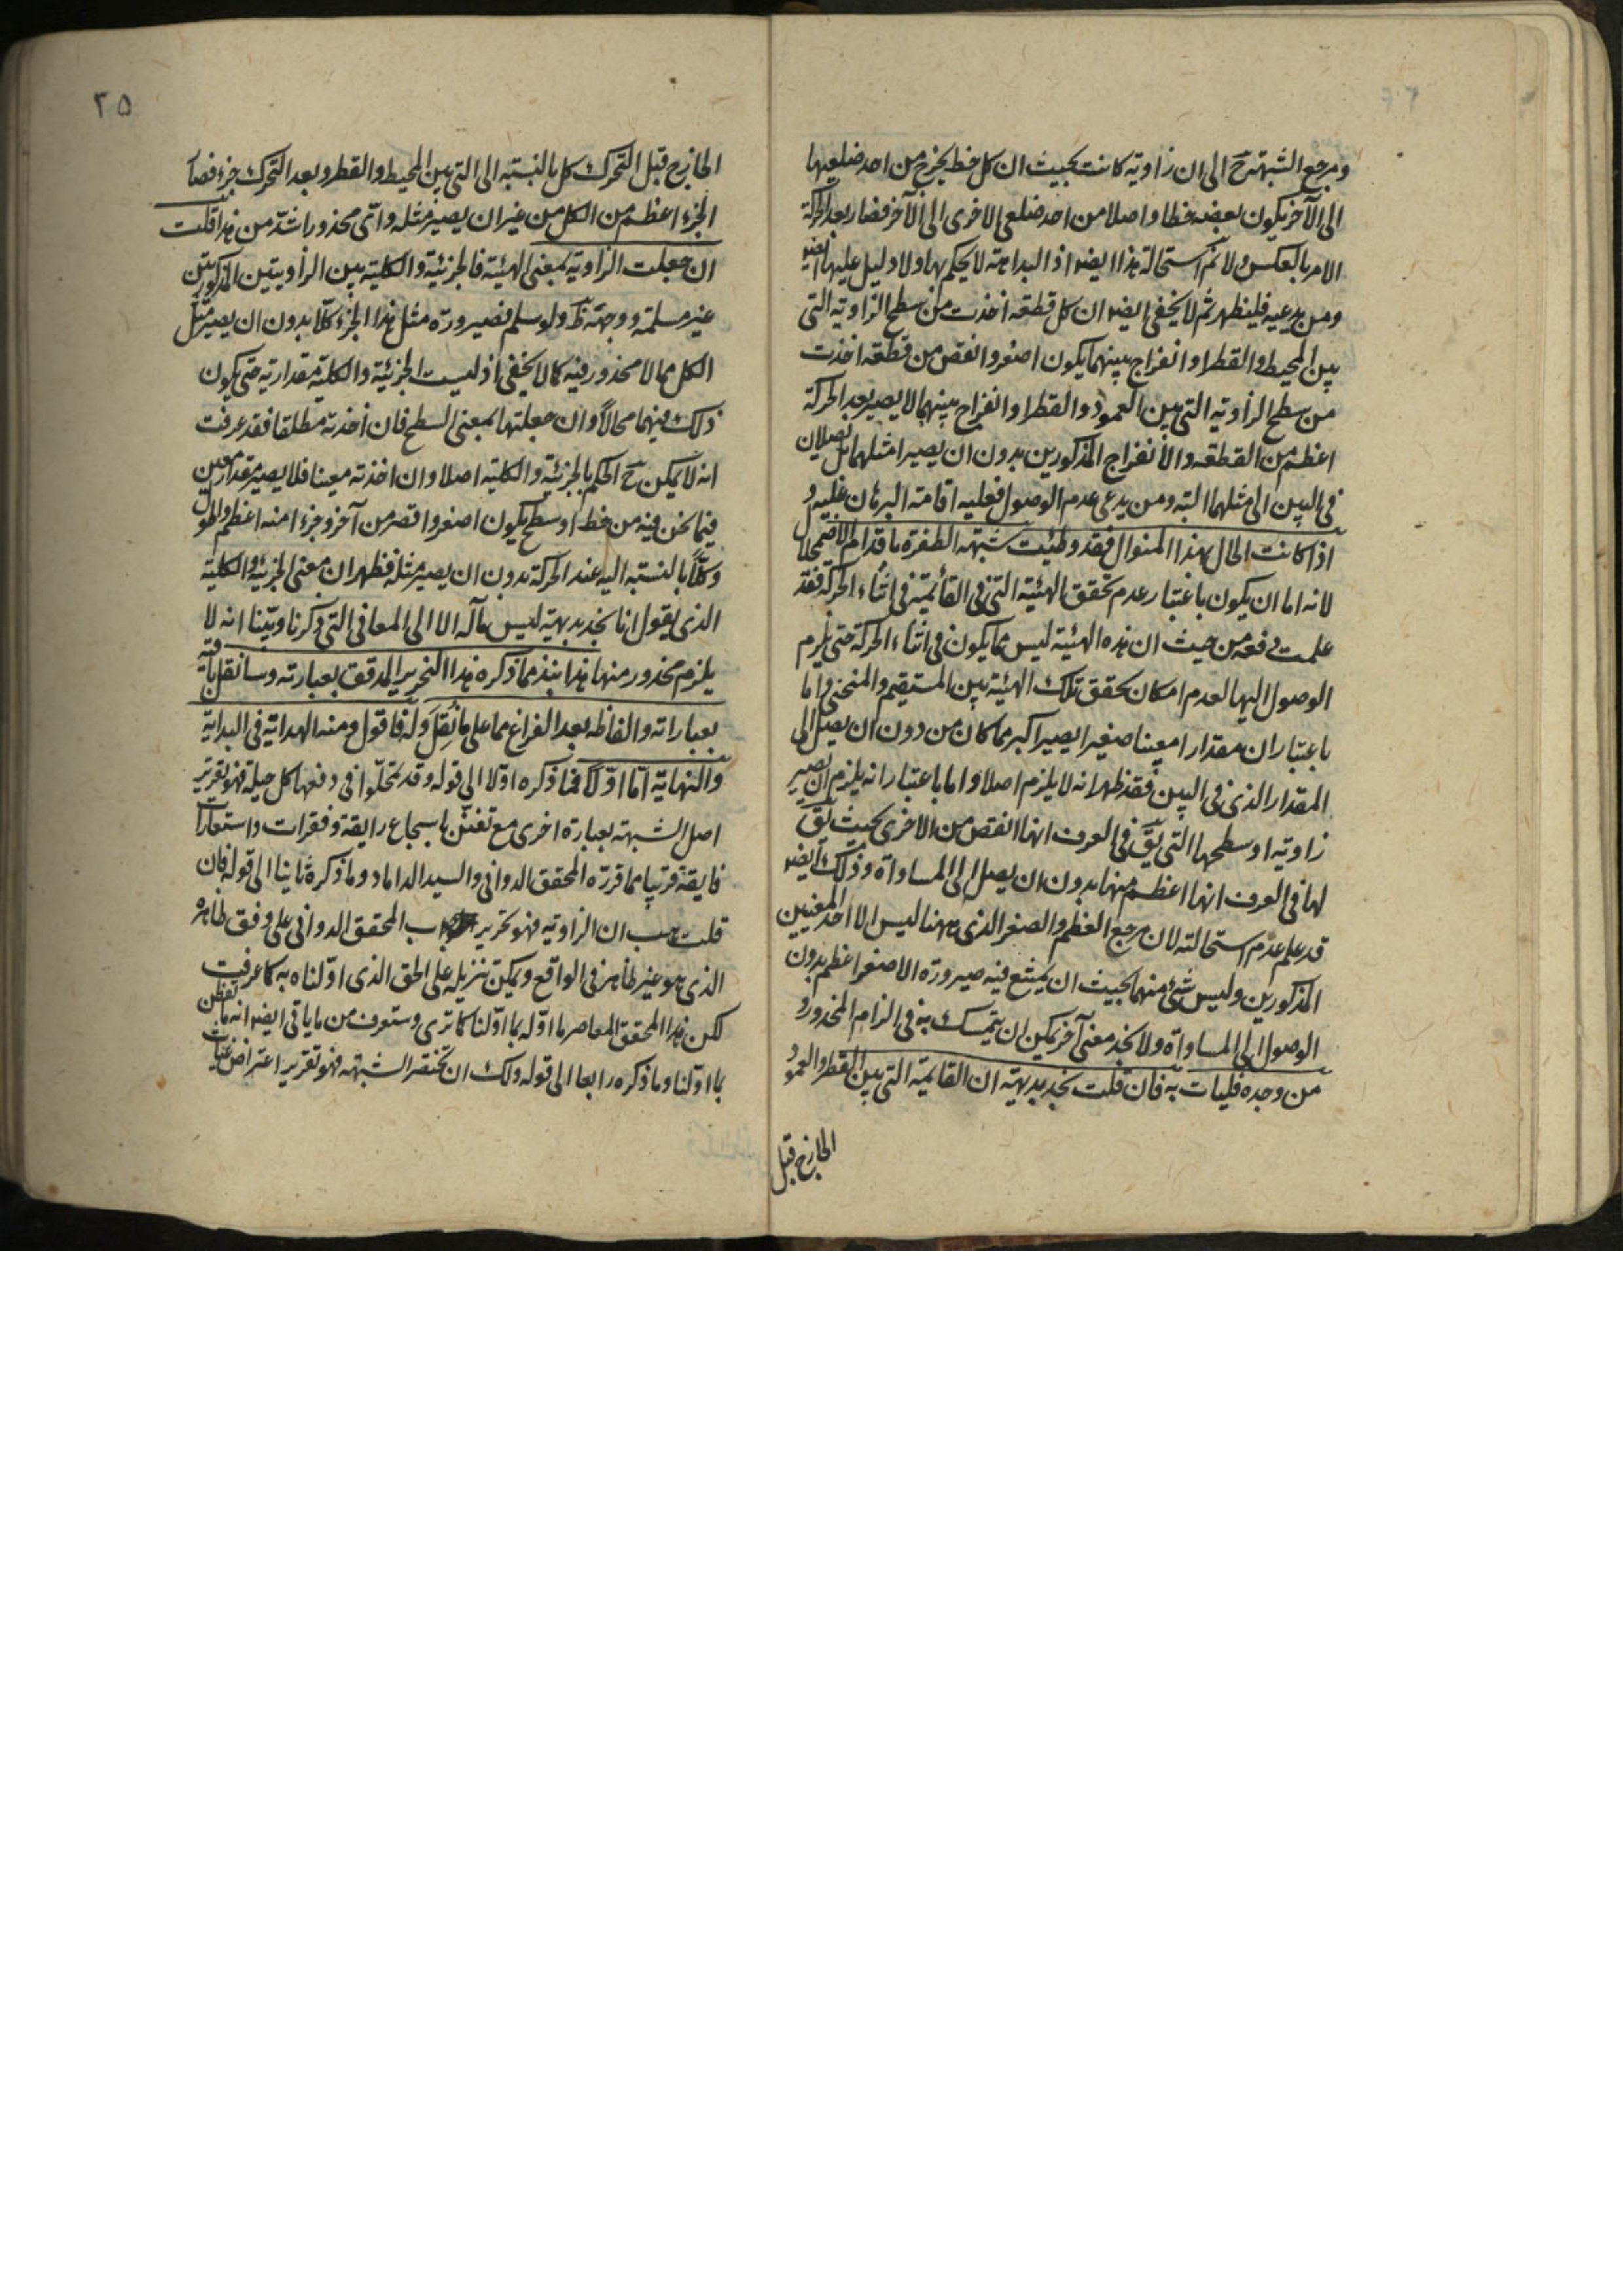 ومرجع الشبهة ح الى ان زاوية كانت بحيث ان كل خط يخرج من احد ضلعيها
الى الآخر يكون بعضه خطا واصلا من احد ضلعى الاخرى الى الآخر فصار بعد الحركة
الامر بالعكس ولا نم استحالة هذا ايضا اذ البداهة لا يحكم بها ولا دليل عليها ايضا
ومن يدعيه فليظهر ثم لا يخفى ايضا ان كل قطعه اخذت من سطح الزاوية التى
بين المحيط والقطر او انفراج بينهما يكون اصغر وانقص من قطعه اخذت
من سطح الزاوية التى بين العمود والقطر او انفراج بينهما لا يصير بعد الحركة
اعظم من القطعه والانفراج المذكورين بدون ان يصير امثلهما بل يصلان
فى البين الى مثلهما البتة ومن يدعى عدم الوصول فعليه اقامة البرهان عليه و
اذا كانت الحال بهذا المنوال فقد وطئت شبهه الطفرة باقدام الاضمحلال
لانه اما ان يكون باعتبار عدم تحقق الهيئة التى فى القائمة فى اثناء الحركة فقد
علمت دفعه من حيث ان هذه الهيئة ليس مما يكون فى اثناء الحركة حتى يلزم
الوصول اليها لعدم امكان تحقق تلك الهيئة بين المستقيم والمنحنى واما
باعتبار ان مقدارا معينا صغيرا يصير اكبر مما كان من دون ان يصل الى
المقدار الذى فى البين فقد ظهر انه لا يلزم اصلا واما باعتبار انه يلزم ان يصير
زاوية او سطحها التى يق فى العرف انها انقص من الاخرى بحيث يق
لها فى العرف انها اعظم منها بدون ان يصل الى المساواة وذلك ايضا
قد علم عدم استحالته لان مرجع العظم والصغر الذى ههنا ليس الا احد المعنيين
المذكورين وليس شئ منهما بحيث ان يمتنع فيه صيرورة الاصغر اعظم بدون
الوصول الى المساواة ولا نجد معنى آخر يمكن ان يتمسك به فى الزام المحذور و
من وجده فليات به فان قلت نجد بديهة ان القايمة التى بين القطر والعمود
الخارج قبل
٢٥
الخارج قبل التحرك كل بالنسبه الى التى بين المحيط والقطر وبعد التحرك جزء فصار
الجزء اعظم من الكل من غير ان يصير مثله واى محذور اشد من هذا قلت
ان جعلت الزاوية بمعنى الهيئة فالجزئية والكلية بين الزاويتين المذكورتين
غير مسلمة ووجهه ظ ولو سلم فصيرورة مثل هذا الجزء كلا بدون ان يصير مثل
الكل مما لا محذور فيه كما لا يخفى اذ ليست الجزئية والكلية مقدارية حتى يكون
ذلك فيهما محالا وان جعلتها بمعنى السطح فان اخذته مطلقا فقد عرفت
انه لا يمكن ح الحكم بالجزئية والكلية اصلا وان اخذته معينا فلا يصير مقدار معين
فيما نحن فيه من خط او سطح يكون اصغر واقصر من آخر وجزءا منه اعظم واطول
وكلا بالنسبه اليه عند الحركة بدون ان يصير مثله فظهر ان معنى الجزئية والكلية
الذى يقول انا نجد بديهة ليس مآله الا الى المعانى التى ذكرنا وبينا انه لا
يلزم محذور منها هذا نبذ مما ذكره هذا النحرير المدقق بعبارته وسانقل باقيه
بعباراته والفاظه بعد الفراغ مما على ما نُقِلَ وله فاقول ومنه الهداية فى البداية
والنهاية اما اولا فما ذكره اولا الى قوله وقد تمحلوا فى دفعها كل حيلة فهو تقرير
اصل الشبهة بعبارة اخرى مع تفنن باسجاع رايقة وفقرات واستعارات
فايقة قريبا مما قرره المحقق الدوانى والسيد الداماد وما ذكره ثانيا الى قوله فان
قلت هب ان الزاوية فهو تحرير جواب المحقق الدوانى على وفق ظاهره
الذى هو غير ظاهر فى الواقع ويمكن تنزيله على الحق الذى اولناه به كما عرفت
لكن هذا المحقق المعاصر ما اوله بما اولنا كما ترى وستعرف من ما ياتى ايضا انه ما تفطن
بما اولنا وما ذكره رابعا الى قوله ولك ان تختصر الشبهه فهو تقرير اعتراض غياث